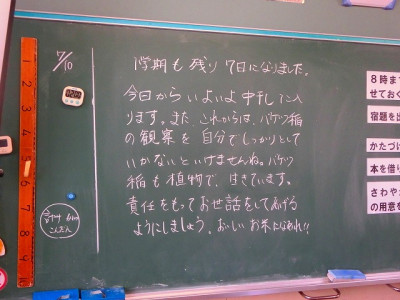 7/10
1学期も残り7日になりました。
今日からいよいよ中干しに入
ります。また、これからは、バケツ稲
の観察を自分でしっかりとして
いかないといけませんね。バケツ
稲も植物で、生きています。
責任をもってお世話をしてあげる
ようにしましょう。おいしいお米になあれ!!
こんだん
1
2
3
4
5
6
7
8
9
8時まで
せておく
宿題を出
かたづけ
本を借り
さわやか
の用意を